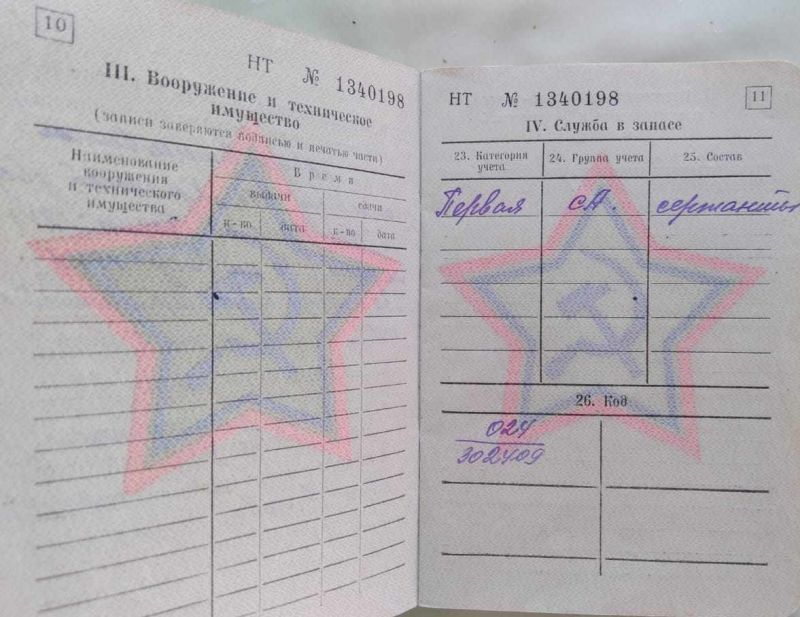 10
НТ № 1340198
III. Вооружение и техническое
имущество
(записи заверяются подписью и печатью части)
Наименование
вооружения
и технического
имущества
Время
выдачи
сдачи
к-во
дата
к-во
дата
НТ № 1340198
11
IV. Служба в запасе
23. Категория
учета
24. Группа учета
25. Состав
Первая
СА.
сержанты
26. Код
024
302409